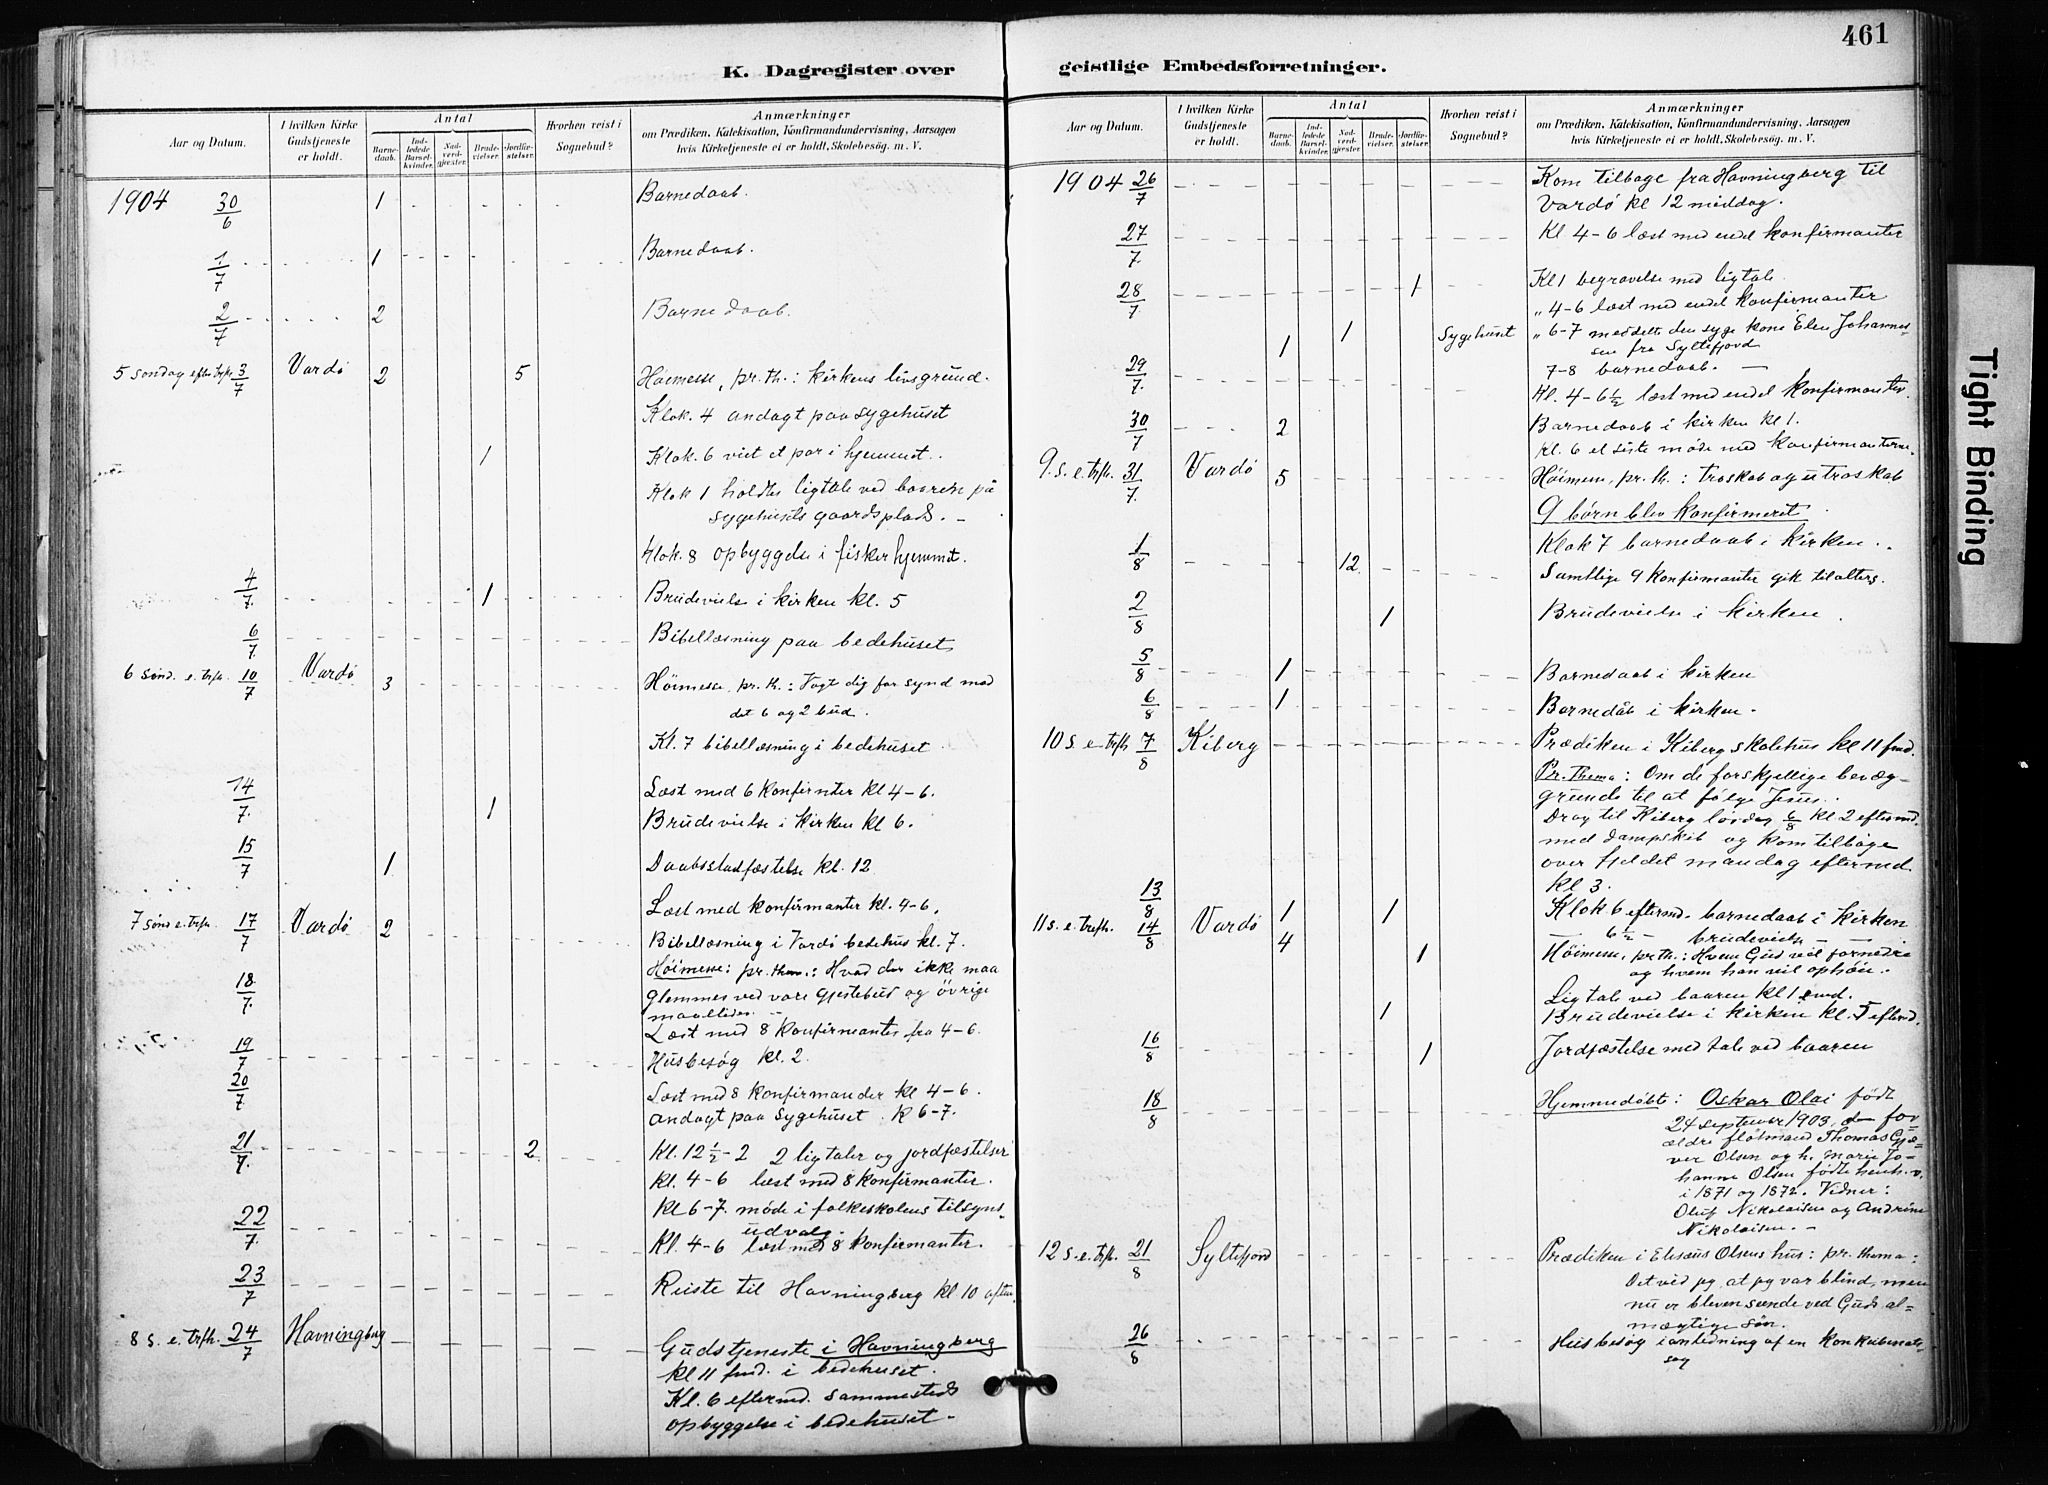 461
K. Dagregister over
Aar og Datum.
I hvilken Kirke Gudstjeneste er holdt.
Antal
Barnedaab.
Indledede Barselkvinder.
Nadverdgjester.
Brudevielser.
Jordfæstelser.
Hvorhen reist i Sognebud?
Anmærkninger
om Prædiken, Katekisation, Konfirmandundervisning, Aarsagen
hvis Kirketjeneste ei er holdt, Skolebesög. m. V.
1904 30/6 1 Barnedaab.
1/7 1 Barnedaab.
2/7 2 Barnedaab.
5 søndag efter trfh. 3/7 Vardø 2 5 Høimesse, pr. th.: kirkens livsgrund.
Klok. 4 andagt paa sygehuset
1 Klok. 6 viet et par i hjemmet.
Klok 1 holdtes ligtale ved baaren på
sygehusets gaardsplads. -
Klok. 8 opbyggelse i fiskerhjemmet.
4/7. 1 Brudevielse i kirken kl. 5
6/7. Bibellæsning paa bedehuset
6 sønd. e. trfh. 10/7 Vardø 3 Høimesse, pr. th.: Vogt dig for synd mod
det 6 og 2 bud.
Kl. 7 bibellæsning i bedehuset
14/7. Læst med 6 konfirmter kl 4-6.
1 Brudevielse i kirken kl 6.
15/7 1 Daabsstadfæstelse kl. 12
Læst med konfirmanter kl. 4-6.
7 sønd e. trfh. 17/7 Vardø 2 Bibellæsning i Vardø bedehus kl. 7.
Høimesse: pr. them.: Hvad der ikke maa
18/7. glemmes ved vore gjestebud og øvrige
maaltider. -
Læst med 8 konfirmanter fra 4-6.
19/7 Husbesøg kl. 2.
20/7 Læst med 8 konfirmander kl 4-6.
andagt paa sygehuset. K 6-7.
21/7. 2 Kl. 12 1/2-2 2 ligtaler og jordfæstelser
Kl. 4-6 læst med 8 konfirmanter.
Kl 6-7. møde i folkeskolens tilsyns-
udvalg.
22/7. Kl. 4-6 læst med 8 konfirmanter.
23/7 Reiste til Havningberg kl 10 aften.
8 s. e. trfh. 24/7 Havningberg Gudstjeneste i Havningberg
kl 11 fmd. i bedehuset.
Kl. 6 eftermd. sammesteds
opbyggelse i bedehuset -
geistlige Embedsforretninger.
Aar og Datum.
I hvilken Kirke Gudstjeneste er holdt.
Antal
Barnedaab.
Indledede Barselkvinder.
Nadverdgjester.
Brudevielser.
Jordfæstelser.
Hvorhen reist i Sognebud?
Anmærkninger
om Prædiken, Katekisation, Konfirmandundervisning, Aarsagen
hvis Kirketjeneste ei er holdt, Skolebesög. m. V.
1904 26/7 Kom tilbage fra Havningberg til
Vardø kl 12 middag.
27/7. Kl. 4-6 læst med endel konfirmanter
28/7. 1 Kl 1 begravelse med ligtale
" 4-6 læst med endel konfirmanter
1 1 Sygehuset " 6-7 meddelt den syge kone Elen Johannes-
sen fra Syltefjord
29/7. 7-8 barnedaab. -
Kl. 4-6 1/2 læst med endel konfirmanter.
30/7 2 Barnedaab i kirken kl 1.
Kl. 6 et siste møde med konfirmanterne.
9. s. e. trfh. 31/7. Vardø 5 Høimesse, pr. th.: troskab og utroskab
9 børn blev konfirmeret
Klok 7 barnedaab i kirken.
1/8 12 Samtlige 9 konfirmanter gik til alters.
2/8 1 Brudevielse i kirken.
5/8 1 Barnedaab i kirken
6/8 1 Barnedåb i kirken.
10 s. e trfh 7/8 Kiberg Prædiken i Kiberg skolehus kl 11 fmd.
Pr. Thema: Om de forskjellige bevæg-
grunde til at følge Jesus.
Drog til Kiberg lørdag 6/8 kl 2 eftermd.
med dampskib og kom tilbage
over fjeldet mandag eftermd
kl 3.
13/8 1 1 Klok 6 eftermd. barnedaab i kirken
— 6 1/2 — brudevielse — —
11 s. e. trfh. 14/8 Vardø 4 1 Høimesse, pr th.: Hvem Gud vil fornedre
og hvem han vil ophøie.
Ligtale ved baaren kl 1 emd.
1 Brudevielse i kirken kl. 5 eftmd.
16/8 1 Jordfæstelse med tale ved baaren
18/8 Hjemmedøbt: Oskar Olai født
24 september 1903, den for-
ældre flotmand Thomas Gjæ-
ver Olsen og h. Marie Jo-
hanne Olsen fødte henh. v.
i 1871 og 1872. Vidner:
Oluf Nikolaisen og Andrine
Nikolaisen. -
12 s. e. trfh. 21/8 Syltefjord Prædiken i Elisæus Olsens hus: pr. thema:
Det ved jeg, at jeg var blind, men
nu er bleven seende ved Guds al-
mægtige søn.
26/8 Husbesøg i anledning af en konkubinats-
sag
Tight Binding